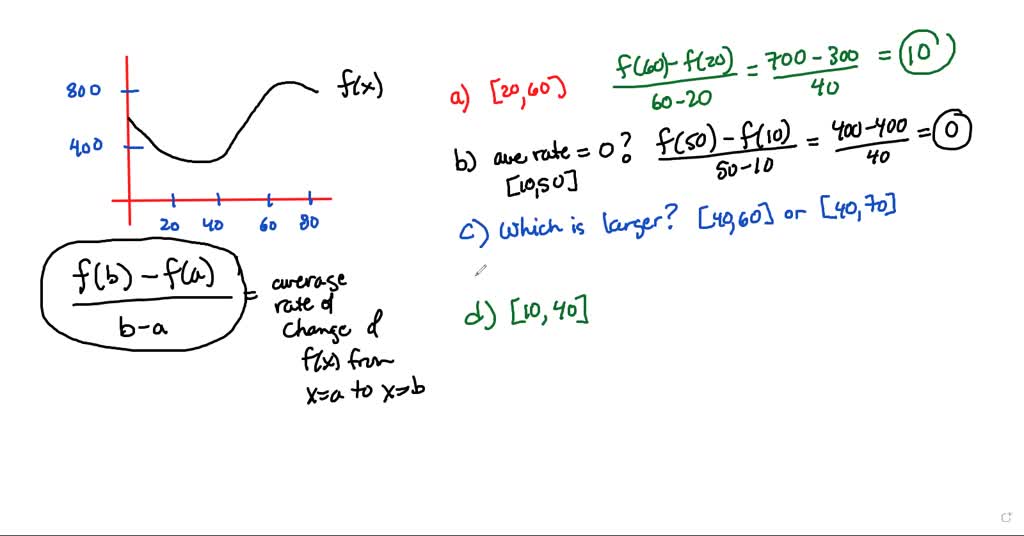 800
400
20 40 60 80
f(x)
f(b) - f(a)
b-a
= average
rate of
change of
f(x) from
x=a to x=b
a) [20,60] f(60)-f(20) / 60-20 = 700-300 / 40 = 10
b) ave rate = 0? f(50)-f(10) / 50-10 = 400-400 / 40 = 0
[10,50]
c) Which is larger? [40,60] or [40,70]
d) [10,40]